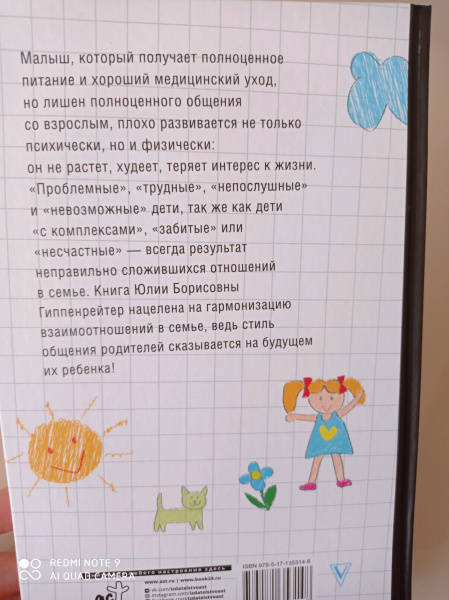 Малыш, который получает полноценное
питание и хороший медицинский уход,
но лишен полноценного общения
со взрослым, плохо развивается не только
психически, но и физически:
он не растет, худеет, теряет интерес к жизни.
«Проблемные», «трудные», «непослушные»
и «невозможные» дети, так же как дети
«с комплексами», «забитые» или
«несчастные» — всегда результат
неправильно сложившихся отношений
в семье. Книга Юлии Борисовны
Гиппенрейтер нацелена на гармонизацию
взаимоотношений в семье, ведь стиль
общения родителей сказывается на будущем
их ребенка!
настроения здесь
www.ast.ru | www.book24.ru
vk.com/izdatelstvoast
instagram.com/izdatelstvoast
ISBN 978-5-17-135314-8
REDMI NOTE 9
AI QUAD CAMERA